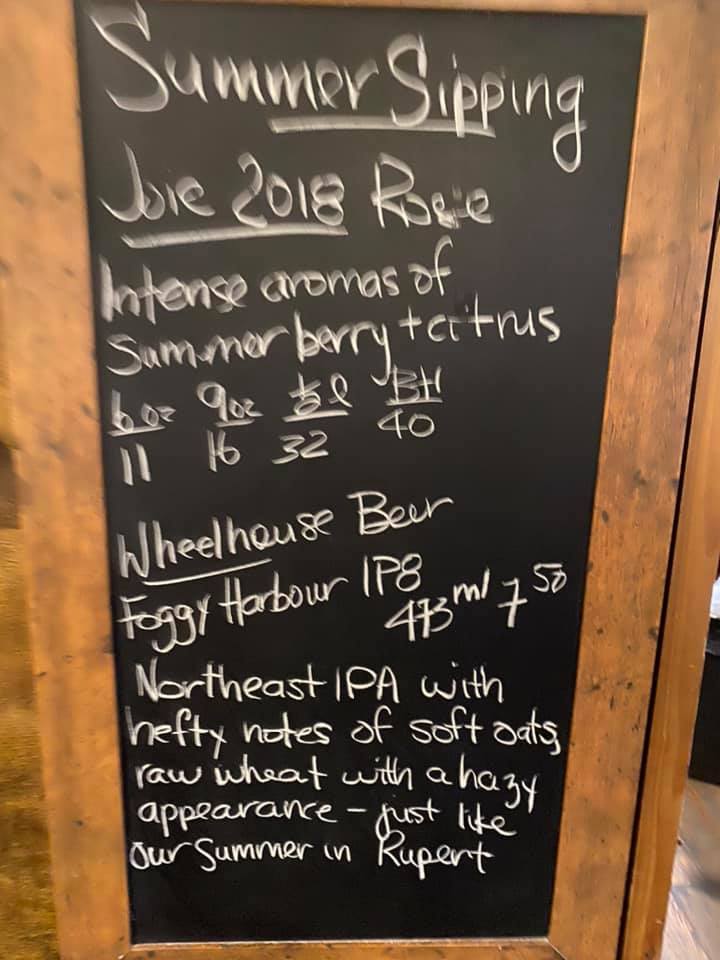 Summer Sipping
Joie 2018 Rosie
Intense aromas of
Summer berry + citrus
6oz 9oz ½ l Btl
11 16 32 40
Wheelhouse Beer
Foggy Harbour IP8
473ml 7 50
Northeast IPA with
hefty notes of soft oats,
raw wheat with a hazy
appearance - just like
our Summer in Rupert